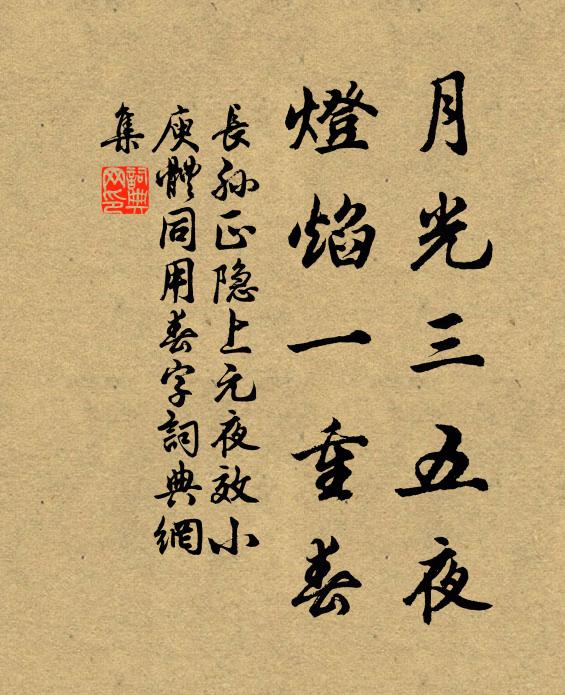 月光三五夜
燈焰一重春
長孙正隐上元夜效小
庾體同用春字詞典網
集
詞典网印